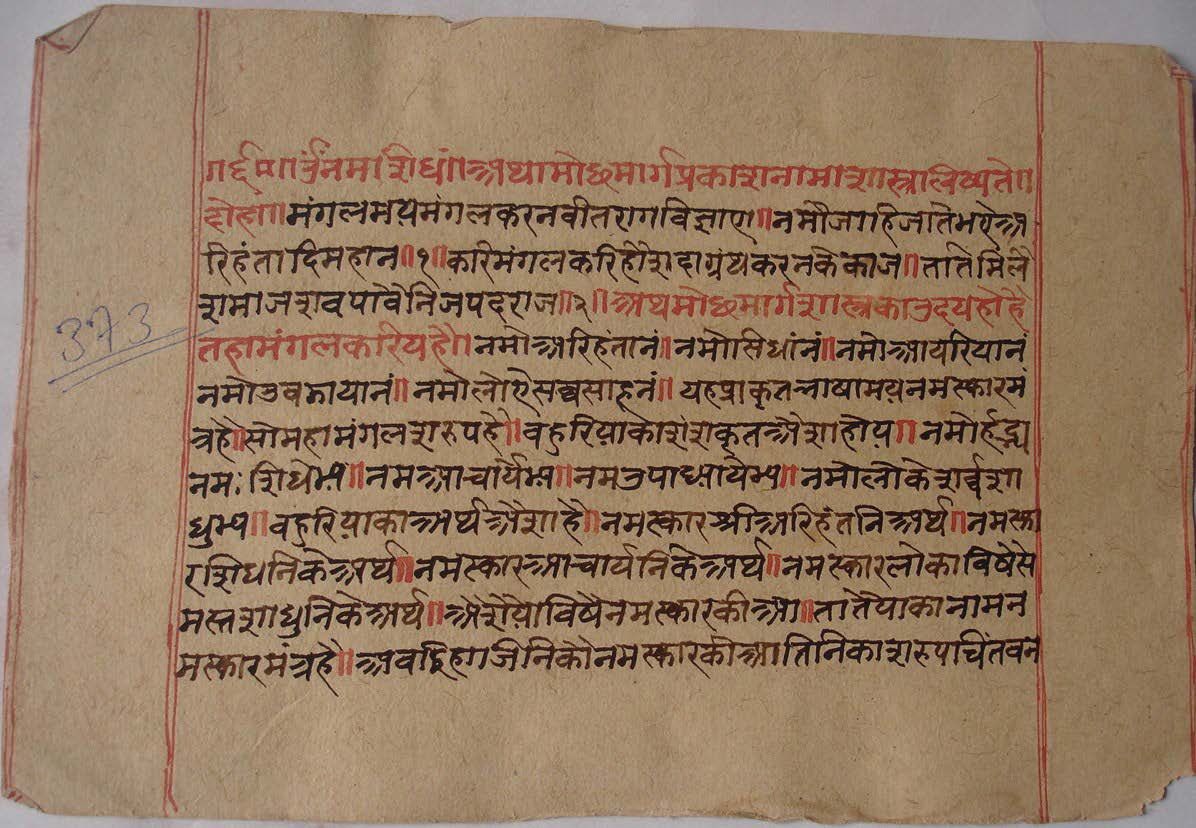 ॐनमःशिधं॥अथामोछमार्गप्रकाशनामाशास्त्रालिष्यते॥
दोहा॥मंगलमयमंगलकरनवीतरागविज्ञाण॥नमौजाहिजातेभएअ
रिहंतादिमहान॥१॥करिमंगलकरिहौशदाग्रंथकरनकेकाज॥तातेमिलै
शमाजशवपावैनिजपदराज॥२॥अथमोछमार्गशास्त्रकाउदयहोहै
तहामंगलकरियहै॥नमोअरिहंतानं॥नमोसिधांनं॥नमोआयरियानं
नमोउवझायानं॥नमोलोऐसव्वसाहूनं॥यहप्राकृतभाषामयनमस्कारमं
त्रहै॥सोमहामंगलशरुपहै॥बहुरियाकोशंशकृतअैशाहोय॥नमोर्हद्भ्य
नमःशिधेभ्य॥नमआचार्येभ्य॥नमउपाध्यायेभ्य॥नमोलोकेशर्व्वशा
धुभ्य॥बहुरियाकाअर्थअैशाहै॥नमस्कारश्रीअरिहंतनिअर्थ॥नमस्का
रशिधनिकेअर्थ॥नमस्कारआचार्यनिकेअर्थ॥नमस्कारलोकाविषैस
मस्तशाधुनिकेअर्थ॥अैशेयाविषैनमस्कारकीआ॥तातेयाकानामन
मस्कारमंत्रहै॥अवइिहाजिनिकौनमस्कारकीआतिनिकाशरुपचिंतवन
373